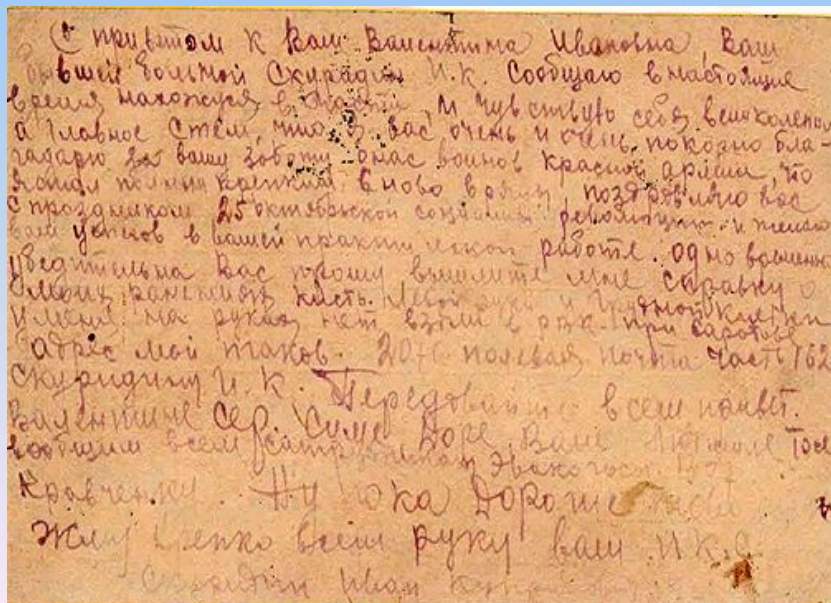 С приветом к Вам Валентина Ивановна, Ваш
бывшей больной Скуридин И.К. Сообщаю в настоящие
время нахожуся в части, и чувствую себя великолепно
а главное стем, что я вас очень и очень покорно бла-
гадарю за вашу заботу онас воинов красной армии, что
я стал полным крепким вново в поздровляю вас
с праздником 25 октябрьской революции и желаю
вам успехов в вашей практической работе. одно временно
убедительна Вас прошу вышлите мне справку о
моих ранениях кисть левой руки и грудной клетки
у меня на руках нет взяли в рзк. при саратове
адрес мой таков. 2070 полевая почта часть 162
Скуридину И.К. Передовайте всем привет.
Валентине Сер. Симе Доре Вале Тосе
вообщим всем Эвакогосп.
Кравченку. Ну пока Дорогие
Жму крепко всем руку ваш И.К.С.
Скуридин Иван